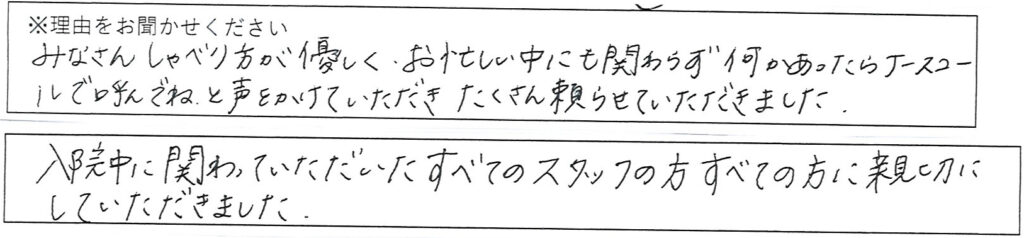 ※理由をお聞かせください
みなさんしゃべり方が優しく、お忙しい中にも関わらず何かあったらナースコー
ルで呼んでね、と声をかけていただきたくさん頼らせていただきました。
入院中に関わっていただいたすべてのスタッフの方すべての方に親切に
していただきました。